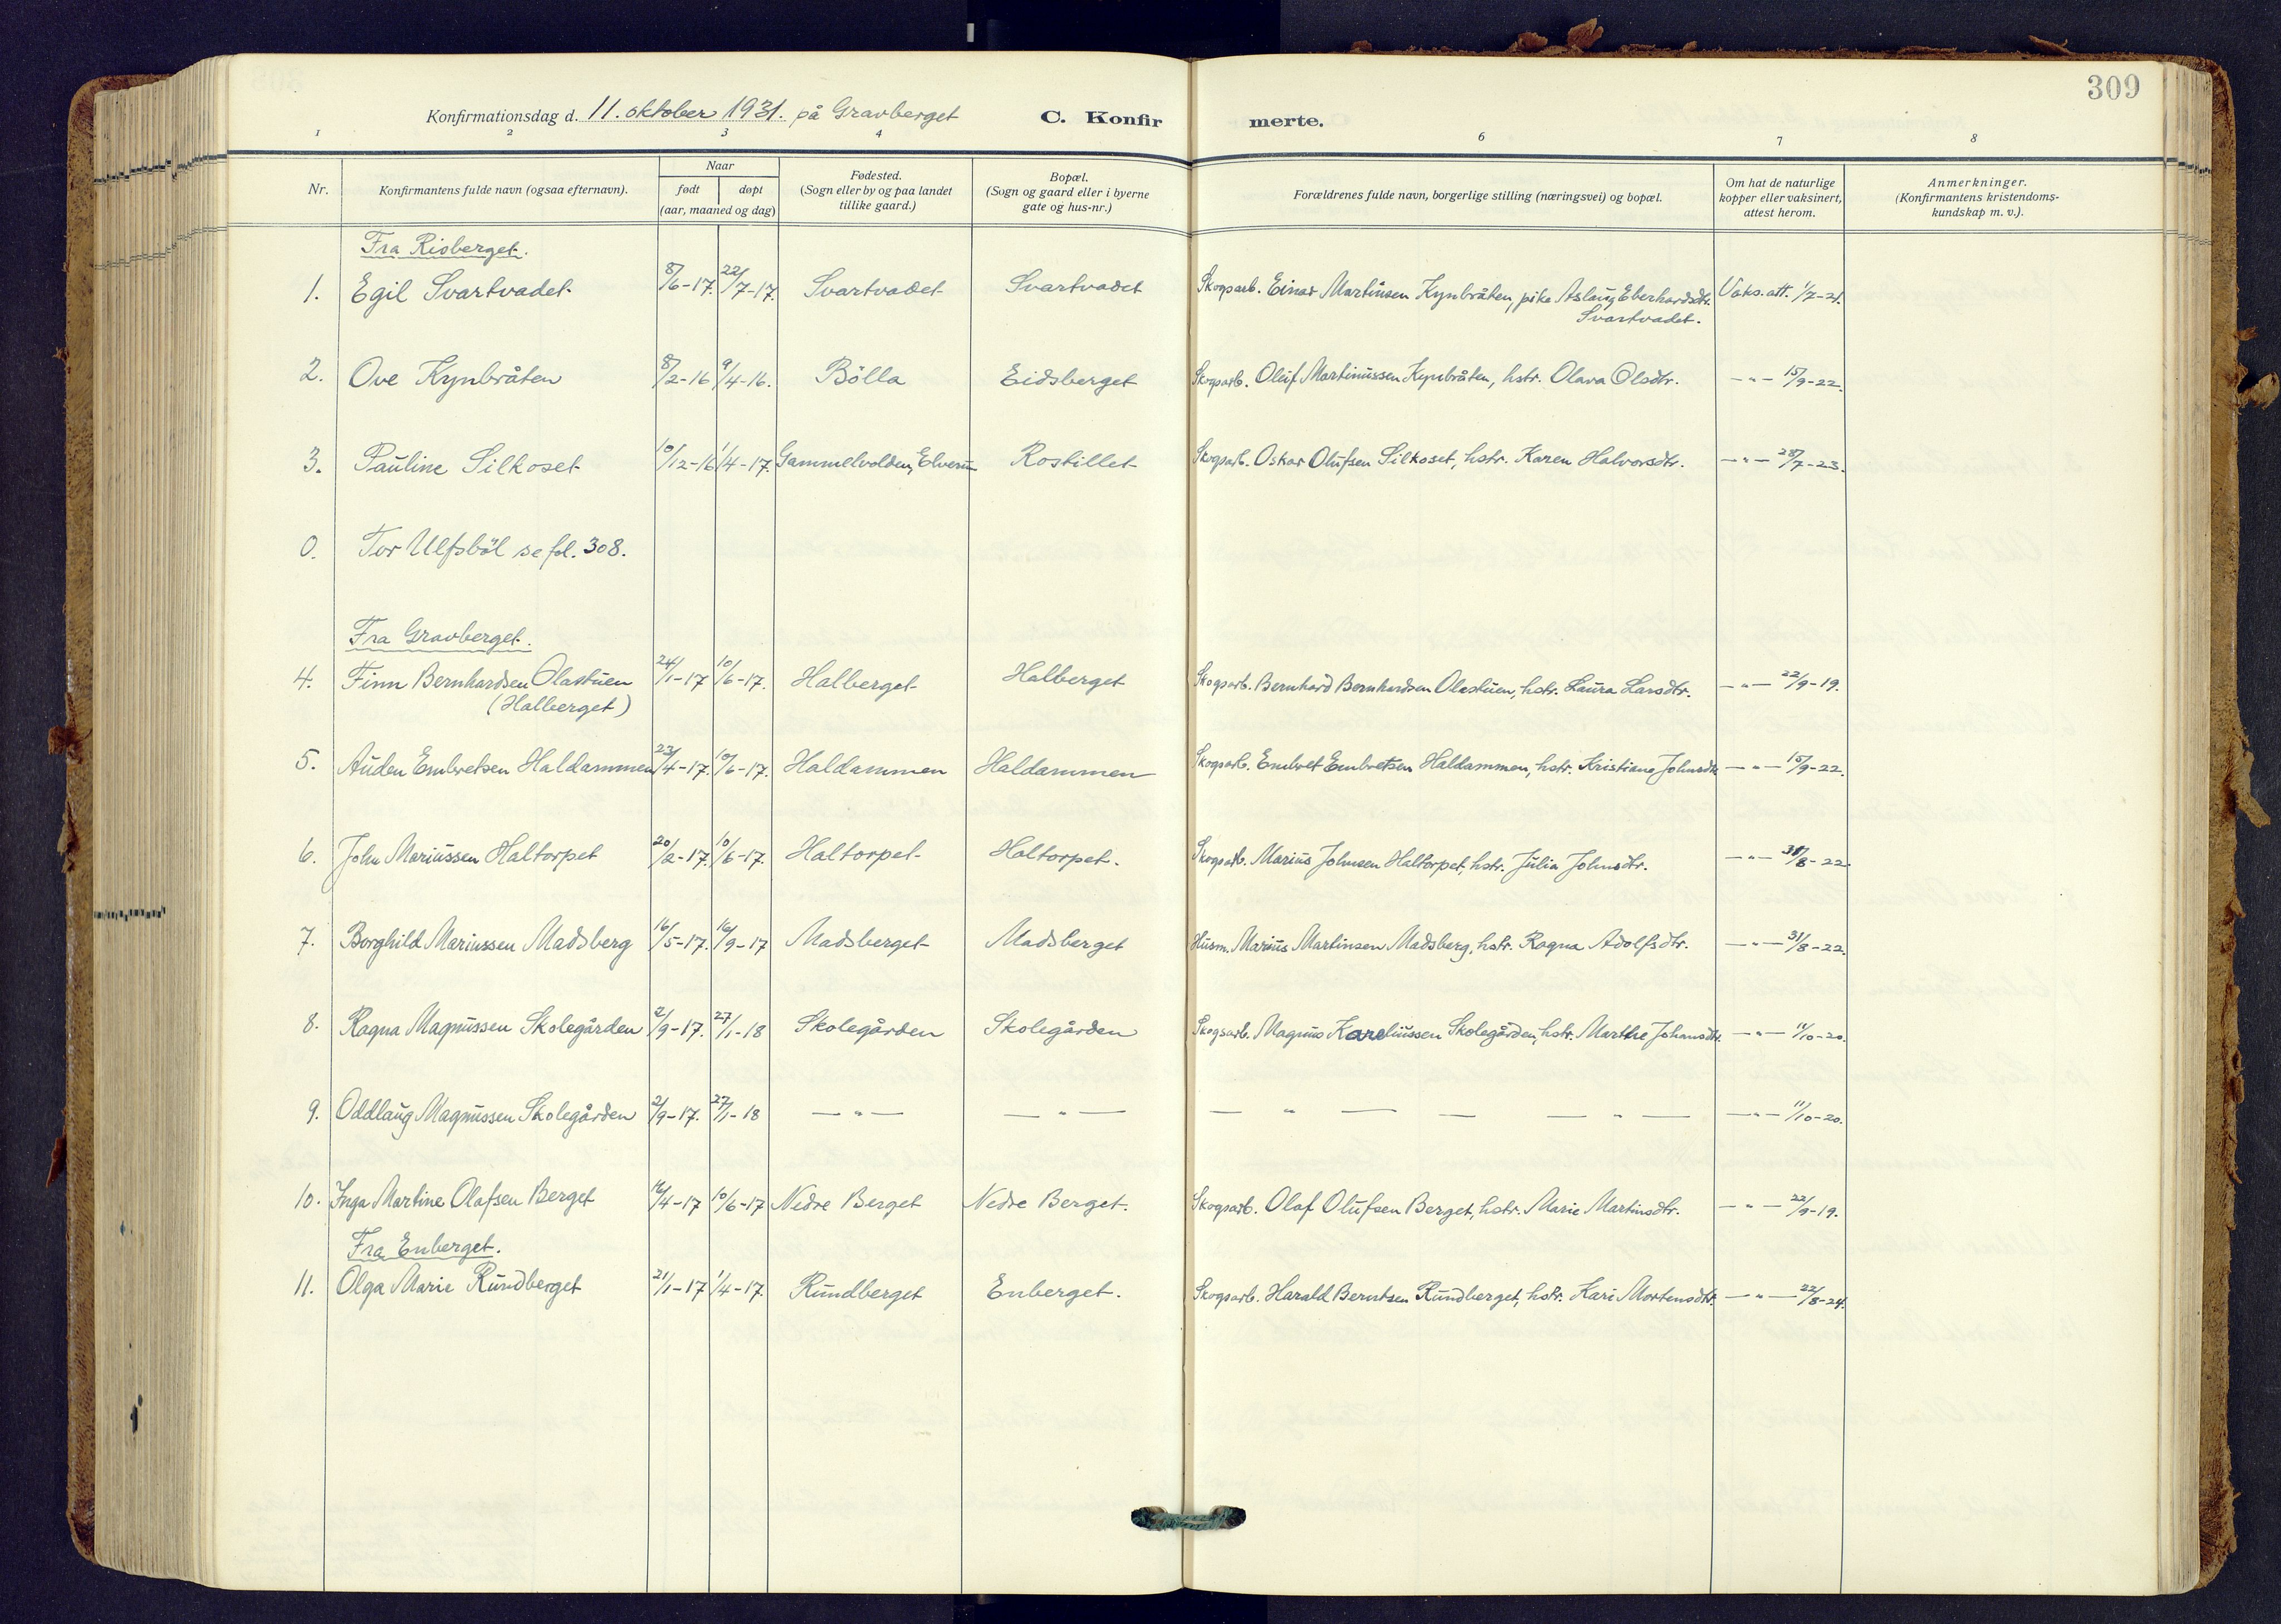 309
Konfirmationsdag d. 11. oktober 1931. på Gravberget C. Konfirmerte.
1 2 3 4 6 7 8
Nr. Konfirmantens fulde navn (ogsaa efternavn). Naar født døpt (aar, maaned og dag) Fødested. (Sogn eller by og paa landet tillike gaard.) Bopæl. (Sogn og gaard eller i byerne gate og hus-nr.) Forældrenes fulde navn, borgerlige stilling (næringsvei) og bopæl. Om hat de naturlige kopper eller vaksinert, attest herom. Anmerkninger. (Konfirmantens kristendoms-kundskap m. v.).
Fra Risberget.
1. Egil Svartvadet 8/6-17. 22/7-17. Svartvadet Svartvadet Skogsarb. Einar Martinsen Kynbråten, pike Aslaug Eberhardsdtr. Vaks. att. 1/7-21.
Svartvadet.
2. Ove Kynbråten 8/2-16 9/4-16. Bölla Eidsberget Skogsarb. Oluf Martinussen Kynbråten, hstr. Olava Olsdtr. —"— 15/9-22.
3. Pauline Silkoset 10/12-16 1/4-17. Gammelvolden, Elverum Rostillet Skogsarb. Oskar Olufsen Silkoset, hstr. Karen Halvorsdtr. —"— 28/7-23.
0. Tor Ulfsböl se fol. 308.
Fra Gravberget.
4. Finn Bernhardsen Olastuen 24/1-17 10/6-17. Halberget Halberget Skogsarb. Bernhard Bernhardsen Olastuen, hstr. Laura Larsdtr. —"— 22/9-19.
(Halberget)
5. Auden Embretsen Haldammen 23/4-17. 10/6-17. Haldammen Haldammen Skogsarb. Embret Embretsen Haldammen, hstr. Kristiane Johnsdtr. —"— 15/9-22.
6. John Mariussen Haltorpet 20/2-17. 10/6-17. Haltorpet Haltorpet. Skogsarb. Marius Johnsen Haltorpet, hstr. Julia Johnsdtr. —"— 31/8-22.
7. Borghild Mariussen Madsberg 16/5-17. 16/9-17 Madsberget Madsberget Husm. Marius Martinsen Madsberg, hstr. Ragna Adolfsdtr. —"— 31/8-22.
8. Ragna Magnussen Skolegården 2/9-17. 27/1-18 Skolegården Skolegården Skogsarb. Magnus Kareliussen Skolegården, hstr. Marthe Johansdtr. —"— 11/10-20.
9. Oddlaug Magnussen Skolegården 2/9-17. 27/1-18 —"— —"— — " — — — " — —"— 11/10-20.
10. Inga Martine Olafsen Berget 16/4-17 10/6-17 Nedre Berget Nedre Berget. Skogsarb. Olaf Olufsen Berget, hstr. Marie Martinsdtr. —"— 22/9-19.
Fra Enberget.
11. Olga Marie Rundberget 21/1-17 1/4-17. Rundberget Enberget. Skogsarb. Harald Berntsen Rundberget, hstr. Kari Mortensdtr. —"— 22/8-24.